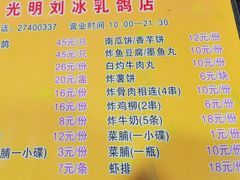 光明刘冰乳鸽店
话：27400337 营业时间 10:00-21:30
鸽 45元/只 南瓜饼/香芋饼 12元/份
45元/只 炸鱼豆腐/墨鱼丸 10元/份
45元/只 白灼牛肉丸 10元/份
20元/盅 炸薯饼 6元/块
16元/份 炸骨肉相连(4串) 10元/份
15元/份 炸鸡柳(2串) 6元/份
12元/份 炸牛奶(5条) 18元/份
3元/份 菜脯(一小碟) 2元/份
(一小碟) 3元/份 菜脯(一瓶) 10元/份
7元/条 虾排 18元/份